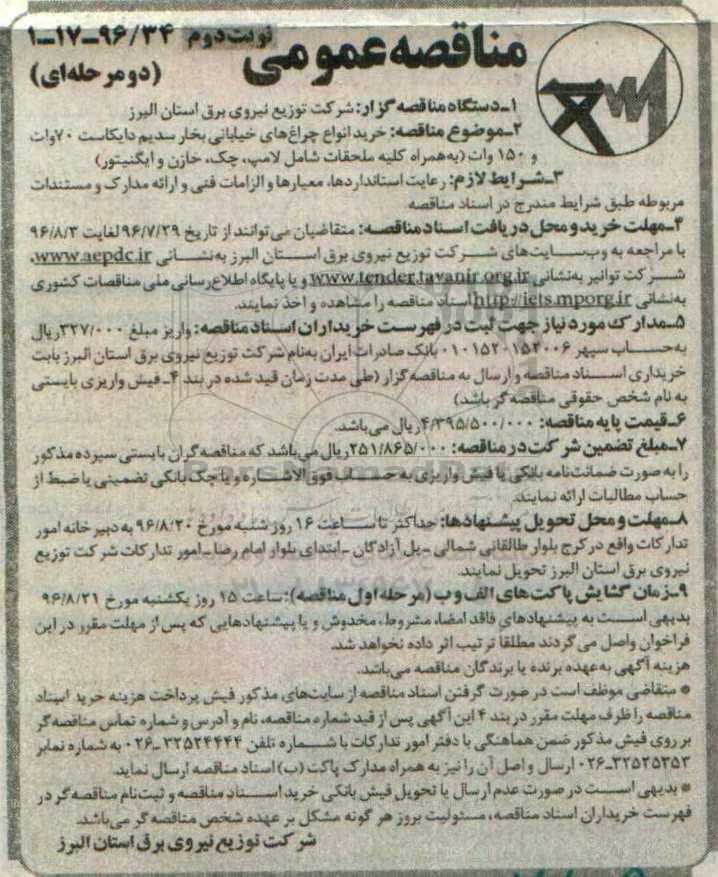 مناقصه عمومی
نوبت دوم ۹۶/۳۴-۱۷-۱
(دو مرحله‌ای)
۱ـ دستگاه مناقصه گزار: شرکت توزیع نیروی برق استان البرز
۲ـ موضوع مناقصه: خرید انواع چراغ‌های خیابانی بخار سدیم دایکاست ۷۰وات
و ۱۵۰ وات (به‌همراه کلیه ملحقات شامل لامپ، چک، خازن و ایگنیتور)
۳ـ شرایط لازم: رعایت استانداردها، معیارها و الزامات فنی و ارائه مدارک و مستندات
مربوطه طبق شرایط مندرج در اسناد مناقصه
۴ـ مهلت خرید و محل دریافت اسناد مناقصه: متقاضیان می‌توانند از تاریخ ۹۶/۷/۲۹ لغایت ۹۶/۸/۳
با مراجعه به وب‌سایت‌های شرکت توزیع نیروی برق استان البرز به‌نشانی www.aepdc.ir،
شرکت توانیر به‌نشانی www.tender.tavanir.org.ir و یا پایگاه اطلاع‌رسانی ملی مناقصات کشوری
به‌نشانی http://iets.mporg.ir اسناد مناقصه را مشاهده و اخذ نمایند.
۵ـ مدارک مورد نیاز جهت ثبت در فهرست خریداران اسناد مناقصه: واریز مبلغ ۳۲۷/۰۰۰ریال
به‌حساب سپهر ۰۱۰۱۵۲۰۱۵۲۰۰۶ بانک صادرات ایران به‌نام شرکت توزیع نیروی برق استان البرز بابت
خریداری اسناد مناقصه و ارسال به مناقصه گزار (طی مدت زمان قید شده در بند ۴ـ فیش واریزی بایستی
به نام شخص حقوقی مناقصه گر باشد)
۶ـ قیمت پایه مناقصه: ۴/۳۹۵/۵۰۰/۰۰۰ریال می‌باشد.
۷ـ مبلغ تضمین شرکت در مناقصه: ۲۵۱/۸۶۵/۰۰۰ریال می‌باشد که مناقصه‌گران بایستی سپرده مذکور
را به صورت ضمانت‌نامه بانکی یا فیش واریزی به حساب فوق الاشاره و یا چک بانکی تضمینی یا ضبط از
حساب مطالبات ارائه نمایند.
۸ـ مهلت و محل تحویل پیشنهادها: حداکثر تا ساعت ۱۶ روز شنبه مورخ ۹۶/۸/۲۰ به دبیرخانه امور
تدارکات واقع در کرج بلوار طالقانی شمالی ـ پل آزادگان ـ ابتدای بلوار امام رضا ـ امور تدارکات شرکت توزیع
نیروی برق استان البرز تحویل نمایند.
۹ـ زمان گشایش پاکت‌های الف و ب (مرحله اول مناقصه): ساعت ۱۵ روز یکشنبه مورخ ۹۶/۸/۲۱
بدیهی است به پیشنهادهای فاقد امضا، مشروط، مخدوش و یا پیشنهادهایی که پس از مهلت مقرر در این
فراخوان واصل می‌گردند مطلقا ترتیب اثر داده نخواهد شد.
هزینه آگهی به‌عهده برنده یا برندگان مناقصه می‌باشد.
* متقاضی موظف است در صورت گرفتن اسناد مناقصه از سایت‌های مذکور فیش پرداخت هزینه خرید اسناد
مناقصه را ظرف مهلت مقرر در بند ۴ این آگهی پس از قید شماره مناقصه، نام و آدرس و شماره تماس مناقصه‌گر
بر روی فیش مذکور ضمن هماهنگی با دفتر امور تدارکات با شماره تلفن ۳۲۵۲۴۴۴۴ـ۰۲۶ به شماره نمابر
۳۲۵۲۵۳۵۳ـ۰۲۶ ارسال و اصل آن را نیز به همراه مدارک پاکت (ب) اسناد مناقصه ارسال نماید.
* بدیهی است در صورت عدم ارسال یا تحویل فیش بانکی خرید اسناد مناقصه و ثبت‌نام مناقصه‌گر در
فهرست خریداران اسناد مناقصه، مسئولیت بروز هر گونه مشکل بر عهده شخص مناقصه گر می‌باشد.
شرکت توزیع نیروی برق استان البرز
ParsNamadData